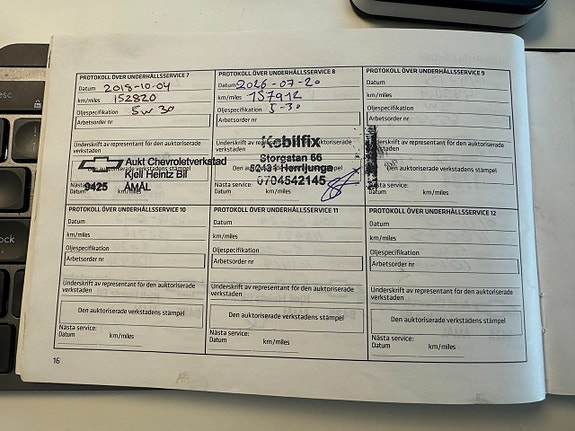 PROTOKOLL ÖVER UNDERHÅLLSSERVICE 7
Datum 2018-10-04
km/miles 152820
Oljespecifikation 5w 30
Arbetsorder nr
Underskrift av representant för den auktoriserade
Aukt Chevroletverkstad
Kjell Heintz Bil
Nästa service:
9425 ÅMÅL
km/miles
PROTOKOLL ÖVER UNDERHÅLLSSERVICE 8
Datum 2026-07-20
km/miles 157912
Oljespecifikation 5-30
Arbetsorder nr
Kabilfix
Storgatan 66
52431 Herrljunga
Nästa service:
0704542145
Datum km/miles
PROTOKOLL ÖVER UNDERHÅLLSSERVICE 9
Datum
km/miles
Oljespecifikation
Arbetsorder nr
Underskrift av representant för den auktoriserade
verkstadens stämpel
Nästa service:
Datum km/miles
PROTOKOLL ÖVER UNDERHÅLLSSERVICE 10
Datum
km/miles
Oljespecifikation
Arbetsorder nr
Underskrift av representant för den auktoriserade
verkstaden
Den auktoriserade verkstadens stämpel
Nästa service:
Datum km/miles
PROTOKOLL ÖVER UNDERHÅLLSSERVICE 11
Datum
km/miles
Oljespecifikation
Arbetsorder nr
Underskrift av representant för den auktoriserade
verkstaden
Den auktoriserade verkstadens stämpel
Nästa service:
Datum km/miles
PROTOKOLL ÖVER UNDERHÅLLSSERVICE 12
Datum
km/miles
Oljespecifikation
Arbetsorder nr
Underskrift av representant för den auktoriserade
verkstaden
Den auktoriserade verkstadens stämpel
Nästa service:
Datum km/miles
16
esc